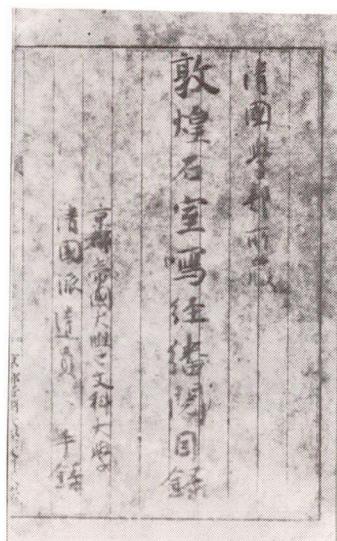 清國學部所藏
敦煌石室寫經繙閲目錄
京都帝國大學文科大學
清國派遣員 手錄